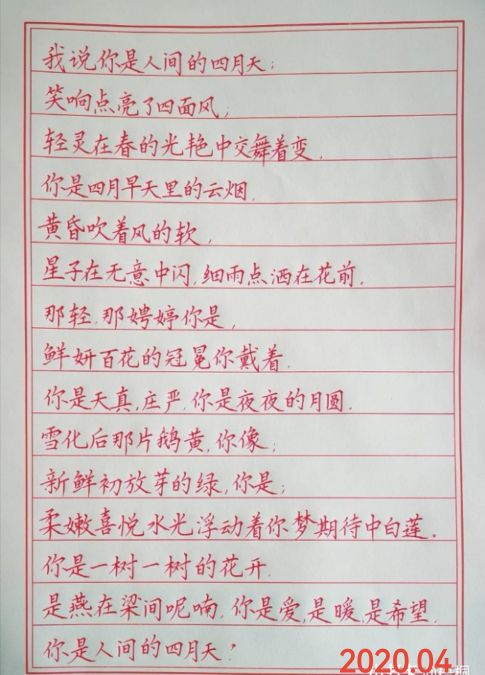 我说你是人间的四月天；
笑响点亮了四面风，
轻灵在春的光艳中交舞着变．
你是四月早天里的云烟．
黄昏吹着风的软，
星子在无意中闪，细雨点洒在花前．
那轻．那娉婷你是，
鲜妍百花的冠冕你戴着．
你是天真，庄严．你是夜夜的月圆．
雪化后那片鹅黄，你像；
新鲜初放芽的绿，你是；
柔嫩喜悦水光浮动着你梦期待中白莲．
你是一树一树的花开．
是燕在梁间呢喃．你是爱，是暖，是希望．
你是人间的四月天！
2020.04